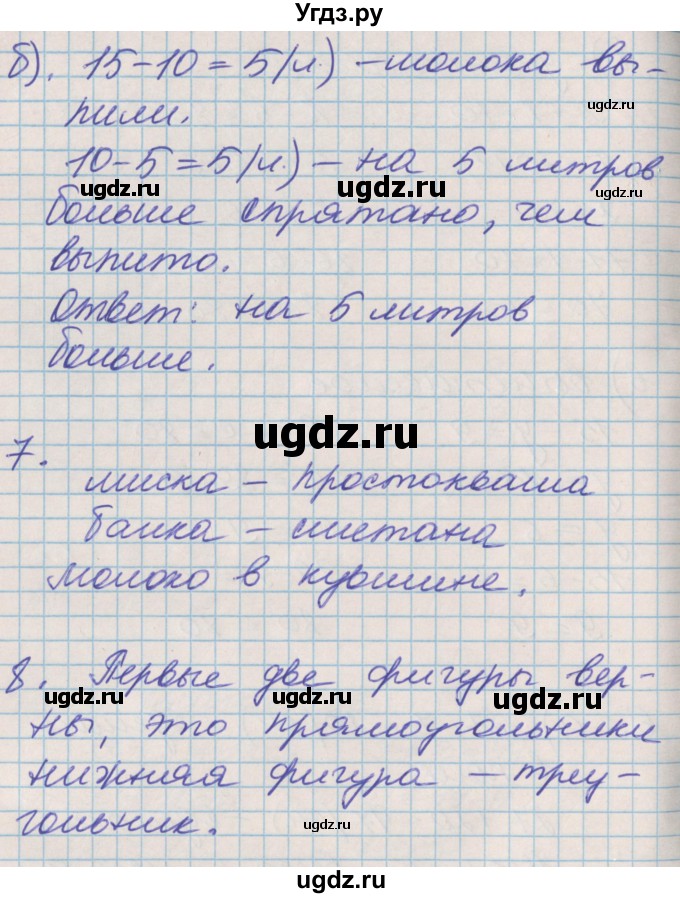 Угдз.ру
б). 15-10=5(л.) -молока вы-
ugdz.ru
пили.
10-5=5(л.) - на 5 литров
ugdz.ru ugdz.ru
больше спрятано, чем
выпито.
Ответ: на 5 литров
больше.
ugdz.ru
7.
миска - простокваша
банка - сметана
молоко в кувшине.
8. Первые две фигуры вер-
ugdz.ru ugdz.ru ugdz.ru
ны, это прямоугольники
нижняя фигура - треу-
гольник.
ugdz.ru
ugdz.ru